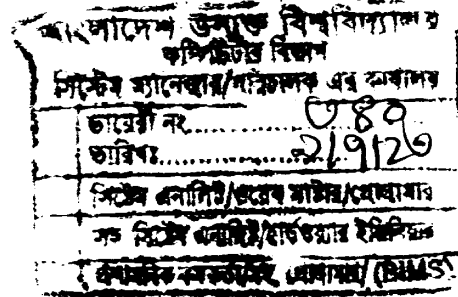 বাংলাদেশ উন্মুক্ত বিশ্ববিদ্যালয়
কম্পিউটার বিভাগ
সিস্টেম ম্যানেজার/পরিচালক এর কার্যালয়
ডায়েরী নং
তারিখঃ
সিস্টেম এনালিষ্ট/ওয়েব মাষ্টার/প্রোগ্রামার
সহ সিস্টেম এনালিষ্ট/হার্ডওয়্যার ইঞ্জিনিয়ার
প্রোগ্রামার/ (BIMS)